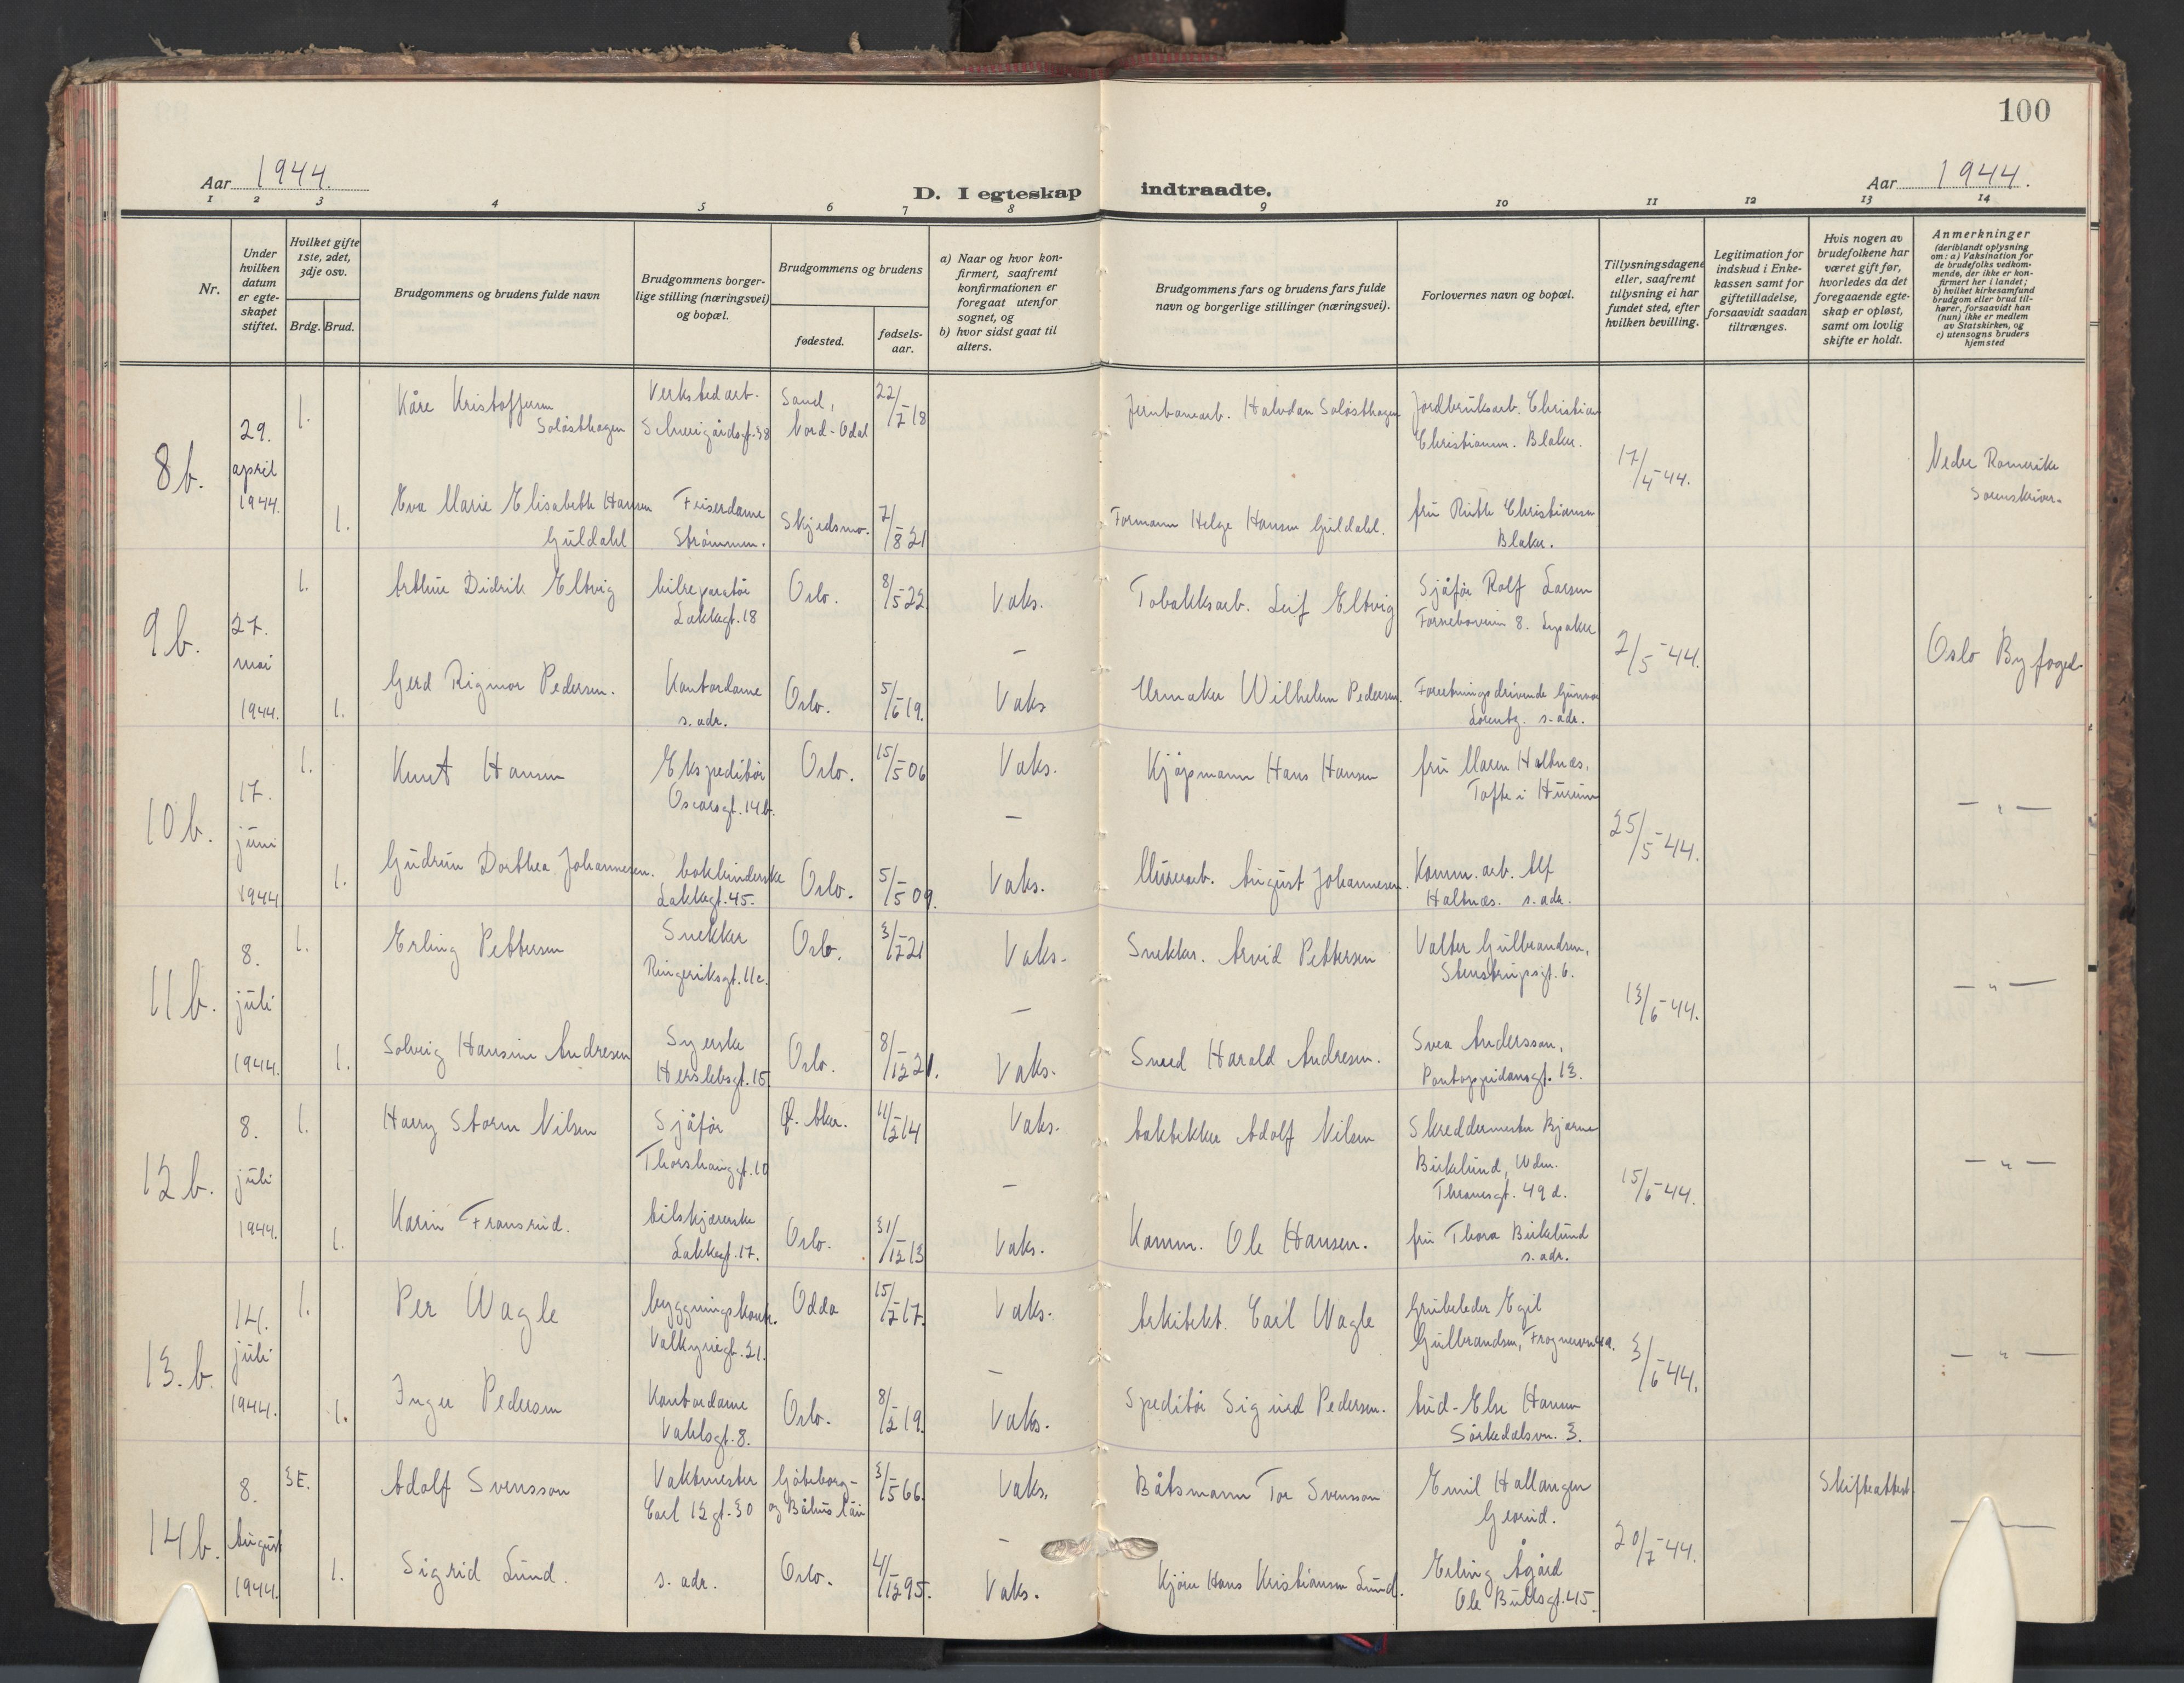 100
Aar 1944.
D. I egteskap indtraadte.
Aar 1944.
1 2 3 4 5 6 7 8 9 10 11 12 13 14
Nr.
Under hvilken datum er egteskapet stiftet.
Hvilket gifte 1ste, 2det, 3dje osv.
Brdg. Brud.
Brudgommens og brudens fulde navn
Brudgommens borgerlige stilling (næringsvei) og bopæl.
Brudgommens og brudens
fødested.
fødselsaar.
a) Naar og hvor konfirmert, saafremt konfirmationen er foregaat utenfor sognet, og
b) hvor sidst gaat til alters.
Brudgommens fars og brudens fars fulde navn og borgerlige stillinger (næringsvei).
Forlovernes navn og bopæl.
Tillysningsdagene eller, saafremt tillysning ei har fundet sted, efter hvilken bevilling.
Legitimation for indskud i Enkekassen samt for giftetilladelse, forsaavidt saadan tiltrænges.
Hvis nogen av brudefolkene har været gift før, hvorledes da det foregaaende egteskap er opløst, samt om lovlig skifte er holdt.
Anmerkninger
(deriblandt oplysning om: a) Vaksination for de brudefolks vedkommende, der ikke er konfirmert her i landet; b) hvilket kirkesamfund brudgom eller brud tilhører, forsaavidt han (hun) ikke er medlem av Statskirken, og c) utensogns bruders hjemsted
8b. 29. april 1944.
1. Kåre Kristoffersen Soløsthagen
Verkstedarb. Schweigårdsgt. 38
Sand, Nord-Odal
22/7-18
Jernbanearb. Halvdan Soløsthagen
Jordbruksarb. Christian Christiansen. Blaker.
17/4-44.
Nedre Romerike Sorenskriver.
1. Eva Marie Elisabeth Hansen Guldahl
Friserdame Strømmen.
Skjedsmo.
7/8-21
Formann Helge Hansen Guldahl.
fru Ruth Christiansen Blaker.
9b. 27. mai 1944.
1. Arthur Didrik Eltvig
bilreparatør Lakkegt. 18
Oslo.
8/5-22.
Vaks.
Tobakksarb. Leif Eltvig
Sjåfør Rolf Larsen Forneboveien 8. Lysaker
2/5-44.
Oslo Byfoged
1. Gerd Rigmor Pedersen.
Kontordame s. adr.
Oslo.
5/6-19.
Vaks
Urmaker Wilhelm Pedersen.
Forretningsdrivende Gunnar Lorentz. s. adr.
10b. 17. juni 1944
1. Knut Hansen
Ekspeditør Oscarsgt. 14b.
Oslo.
15/5-06
Vaks.
Kjøpmann Hans Hansen
fru Maren Haltnæs, Tofte i Hurum
25/5-44.
— " —
1. Gudrun Dorthea Johannesen.
bokbinderske Lakkegt. 45.
Oslo.
5/5-09.
Vaks.
Murerarb. August Johannesen.
Komm. arb. Alf Haltnæs. s. adr.
11b. 8. juli 1944.
1. Erling Pettersen
Snekker Ringeriksgt. 11c.
Oslo.
3/7-21
Vaks.
Snekker. Arvid Pettersen
Valter Gulbrandsen, Stenstrupsgt. 6.
13/6-44.
— " —
1. Solveig Hansine Andresen
Syerske Herslebsgt. 15
Oslo.
8/12-21.
Vaks.
Smed Harald Andresen.
Svea Andersson, Pontoppidansgt. 13.
12b. 8. juli 1944.
1. Harry Storm Nilsen
Sjåfør Thorshauggt. 10
Ø. Aker.
11/2-14
Vaks.
taktekker Adolf Nilsen
Skreddermester Bjarne Birklund, Wdm. Thranesgt. 49 d.
15/6-44.
— " —
1. Karin Fransrud.
tilskjærerske Lakkegt. 17.
Oslo.
31/12-13
Vaks.
Komm. Ole Hansen.
fru Thora Birklund s. adr.
13.b. 14. juli 1944.
1. Per Wagle
bygningskontr. Valkyriegt. 21.
Odda
15/7-17.
Vaks.
Arkitekt. Carl Wagle
Grubeleder Egil Gulbrandsen, Frognervn
3/6-44.
— " —
1. Inger Pedersen
Kontordame Vahlsgt. 8.
Oslo.
8/2-19.
Vaks.
Speditør Sigurd Pedersen.
Aud-Else Hansen Sørkedalsvn. 3.
14b. 8. August 1944.
3E. Adolf Svensson
Vaktmester Carl 12 gt. 30
Gøteborg- og Båhus län
3/5-66.
Vaks.
Båtsmann Tor Svensson
Emil Hallangen Gjerud.
20/7-44.
Skifteattest
1. Sigrid Lund.
s. adr.
Oslo.
4/12-95.
Vaks.
Kjører Hans Kristiansen Lund.
Erling Ågård Ole Bullsgt. 45.